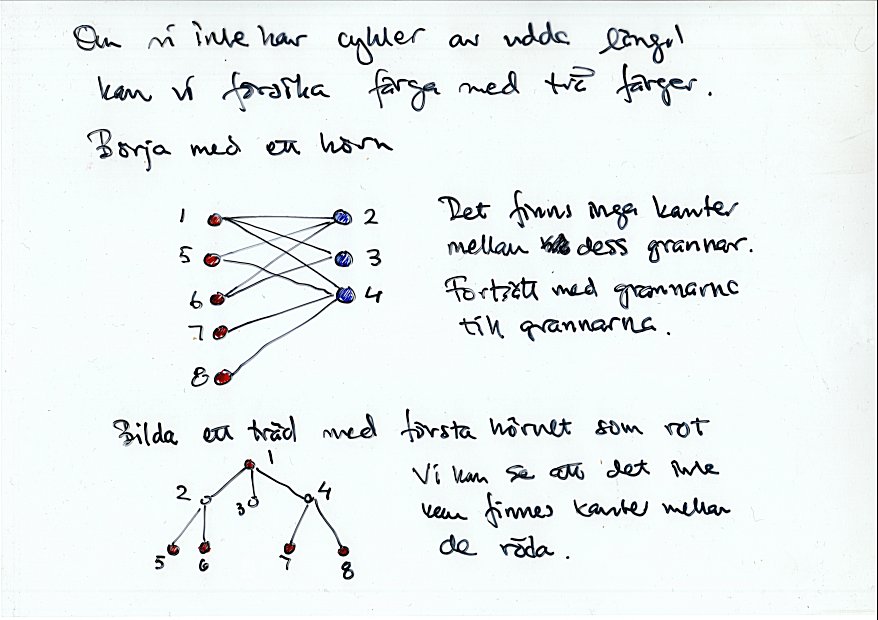 Om vi inte har cykler av udda längd
kan vi försöka färga med två färger.
Börja med ett hörn
1 2
5 3
6 4
7
8
Det finns inga kanter
mellan dess grannar.
Fortsätt med grannarna
till grannarna.
Bilda ett träd med första hörnet som rot
1
2 3 4
5 6 7 8
Vi kan se att det inte
kan finnes kanter mellan
de röda.